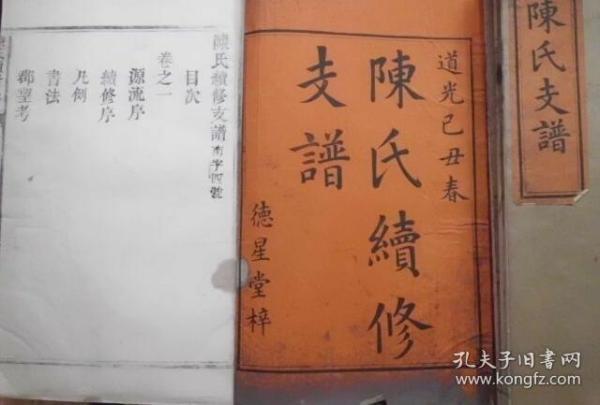 陳氏支譜
道光己丑春
陳氏續修
支譜
德星堂梓
陳氏續修支譜南字四號
目次
卷之一
源流序
續修序
凡例
書法
郡望考
孔夫子旧书网
www.kongfz.com